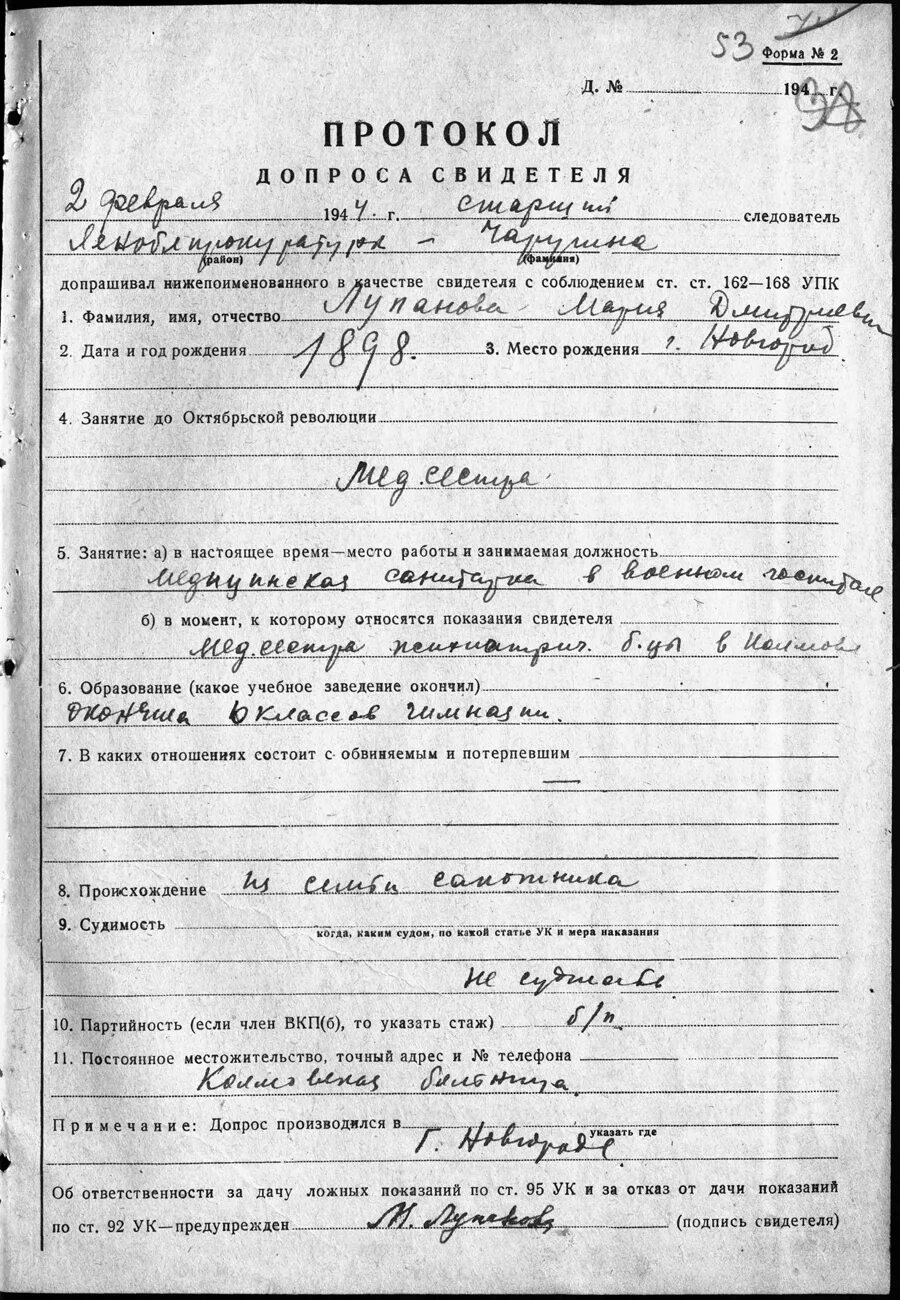 53
Форма № 2
Д. № 194 г.
ПРОТОКОЛ
ДОПРОСА СВИДЕТЕЛЯ
2 февраля 1944 г. старший следователь
Леноблпрокуратуры – Чаругина
(район) (фамилия)
допрашивал нижепоименованного в качестве свидетеля с соблюдением ст. ст. 162—168 УПК
1. Фамилия, имя, отчество Лупанова Мария Дмитриевна
2. Дата и год рождения 1898. 3. Место рождения г. Новгород
4. Занятие до Октябрьской революции
Мед.сестра
5. Занятие: а) в настоящее время—место работы и занимаемая должность
санитарка в военном госпитале
б) в момент, к которому относятся показания свидетеля
мед.сестра психиатрич. б-цы в Колмове
6. Образование (какое учебное заведение окончил)
окончила 6 классов гимназии.
7. В каких отношениях состоит с обвиняемым и потерпевшим
—
8. Происхождение из семьи сапожника
9. Судимость
когда, каким судом, по какой статье УК и мера наказания
не
10. Партийность (если член ВКП(б), то указать стаж) б/п
11. Постоянное местожительство, точный адрес и № телефона
Колмовская больница
Примечание: Допрос производился в
указать где
г. Новгороде
Об ответственности за дачу ложных показаний по ст. 95 УК и за отказ от дачи показаний
по ст. 92 УК—предупрежден М. Лупанова (подпись свидетеля)